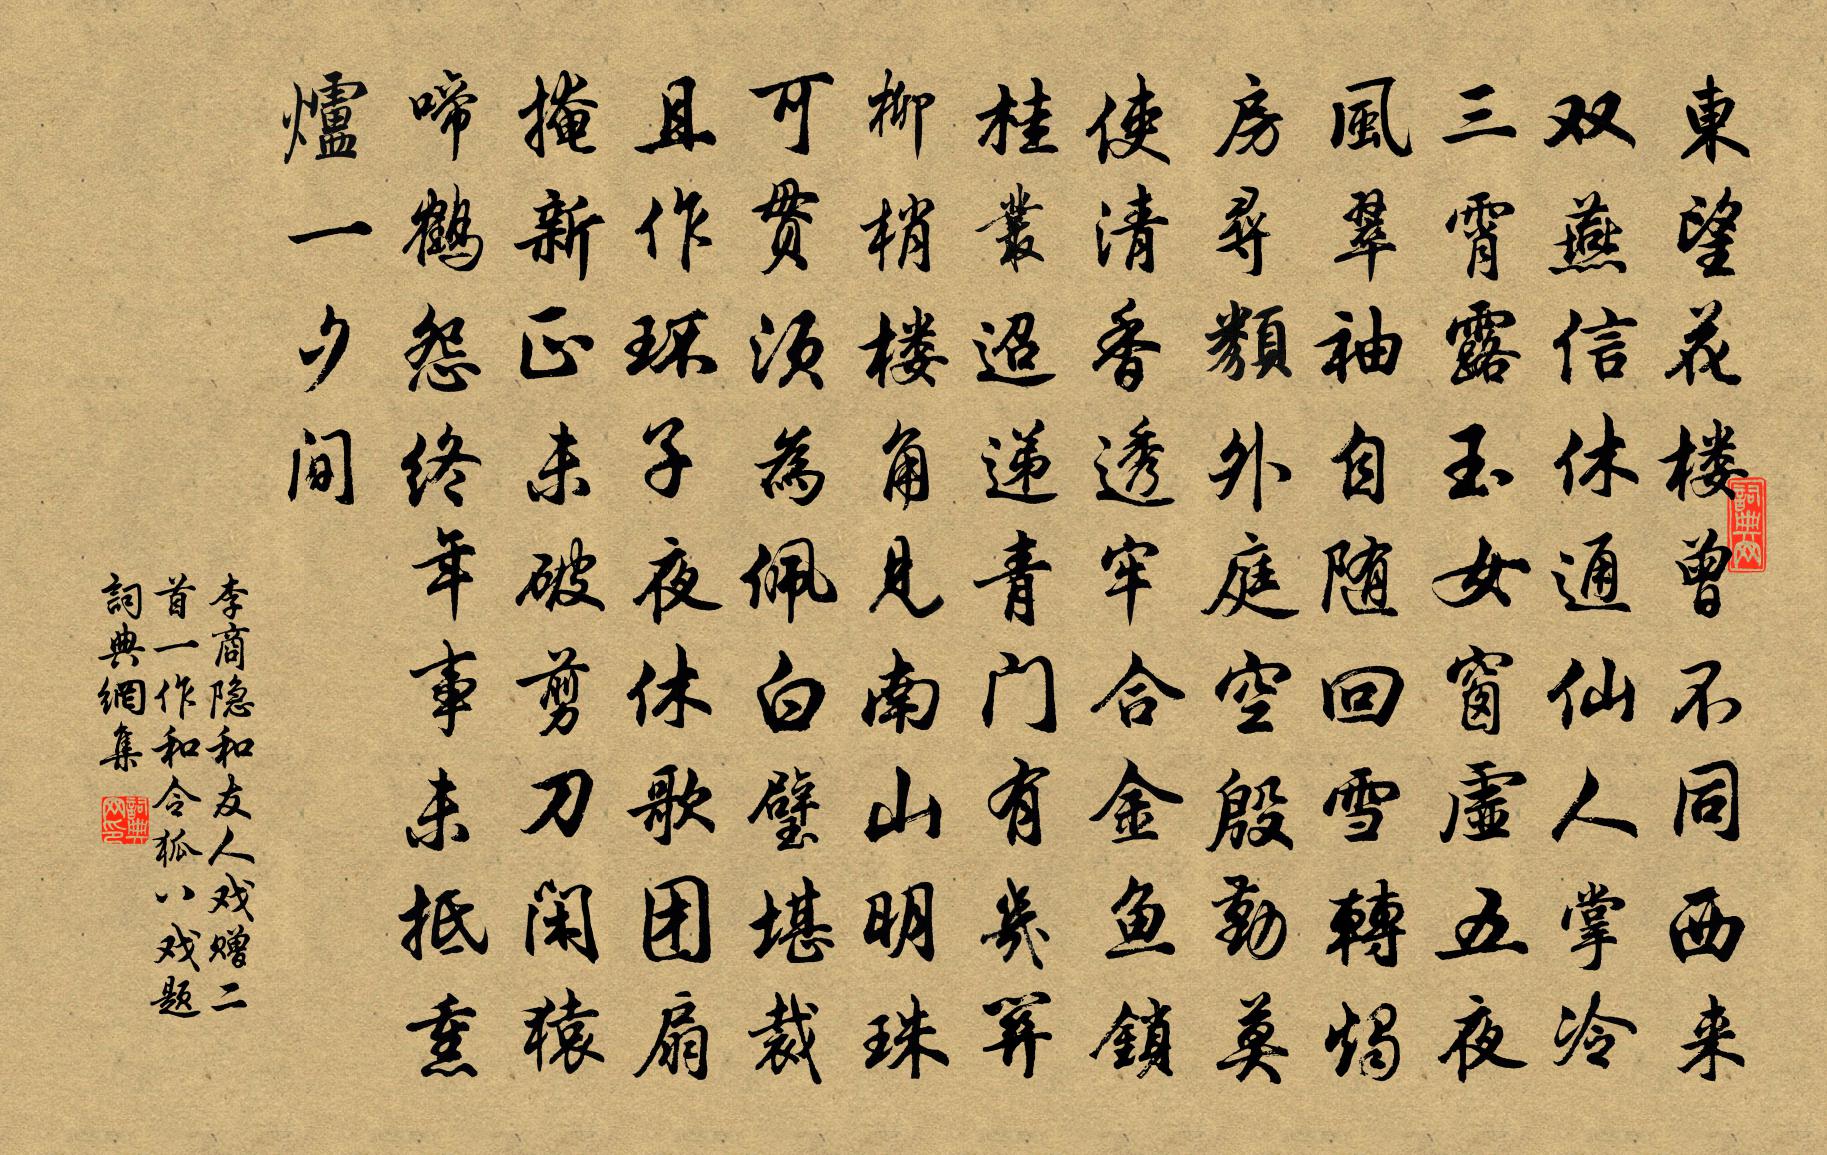 東望花楼曾不同西来
双燕信休通仙人掌冷
三霄露玉女窗虚五夜
風翠袖自随回雪轉燭
房尋類外庭空殷勤莫
使清香透牢合金鱼鎖
桂叢迢递青门有幾关
柳梢楼角见南山明珠
可贯须為佩白璧堪裁
且作环子夜休歌团扇
掩新正未破剪刀闲猿
啼鶴怨终年事未抵熏
爐一夕间
李商隐和友人戏赠二
首一作和令狐八戏题
詞典網集
詞典网
詞典网印